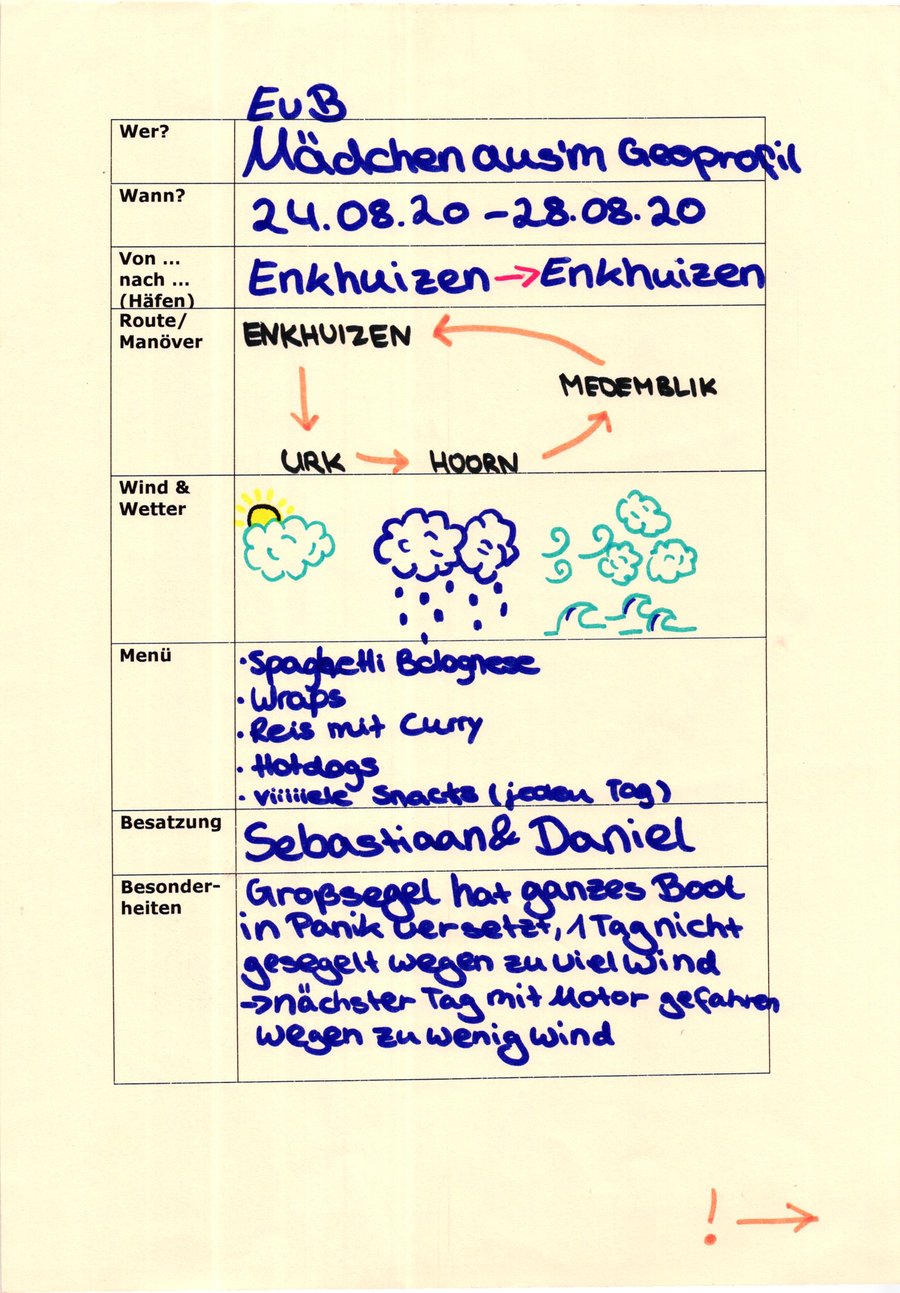 EvB
Wer?
Mädchen aus'm Geoprofil
Wann?
24.08.20 - 28.08.20
Von ...
nach ...
(Häfen)
Enkhuizen → Enkhuizen
Route/
Manöver
ENKHUIZEN
MEDEMBLIK
URK → HOORN
Wind &
Wetter
Menü
· Spaghetti Bolognese
· Wraps
· Reis mit Curry
· Hotdogs
· viiiiiele Snacks (jeden Tag)
Besatzung
Sebastiaan & Daniel
Besonder-
heiten
Großsegel hat ganzes Boot
in Panik versetzt, 1 Tag nicht
gesegelt wegen zu viel wind
→ nächster Tag mit Motor gefahren
wegen zu wenig wind
! →